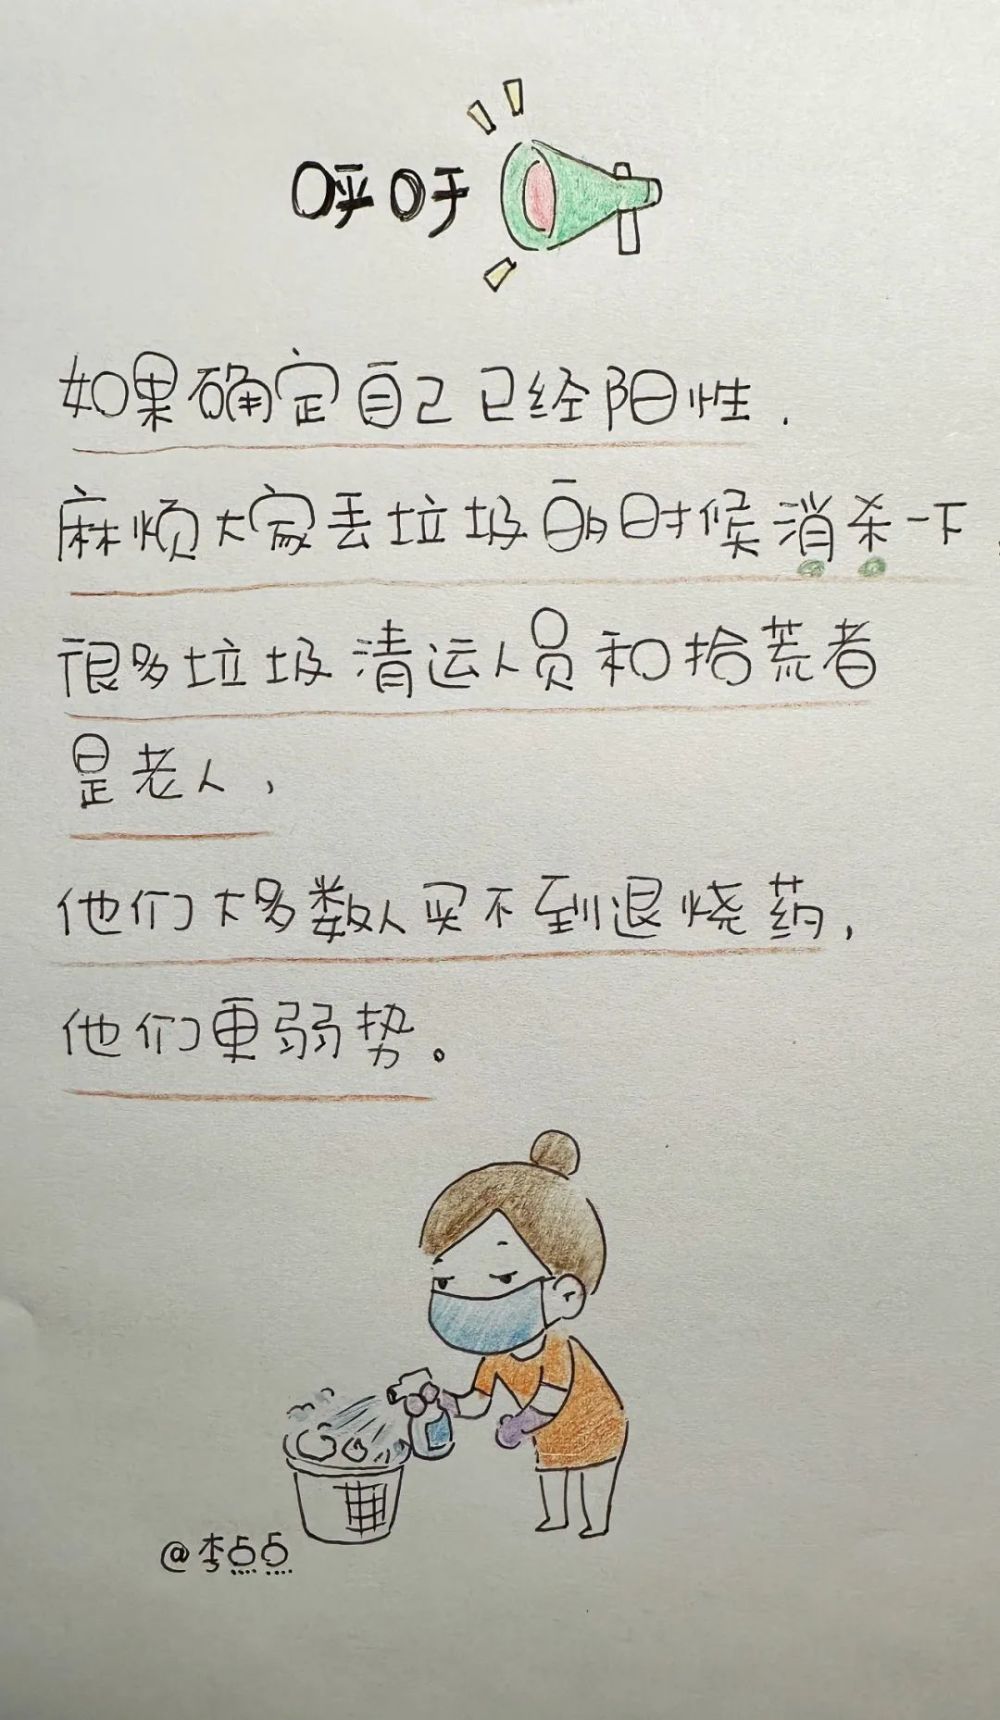 呼吁
如果确定自己已经阳性.
麻烦大家丢垃圾的时候消杀一下,
很多垃圾清运人员和拾荒者
是老人,
他们大多数人买不到退烧药,
他们更弱势。
@李点点